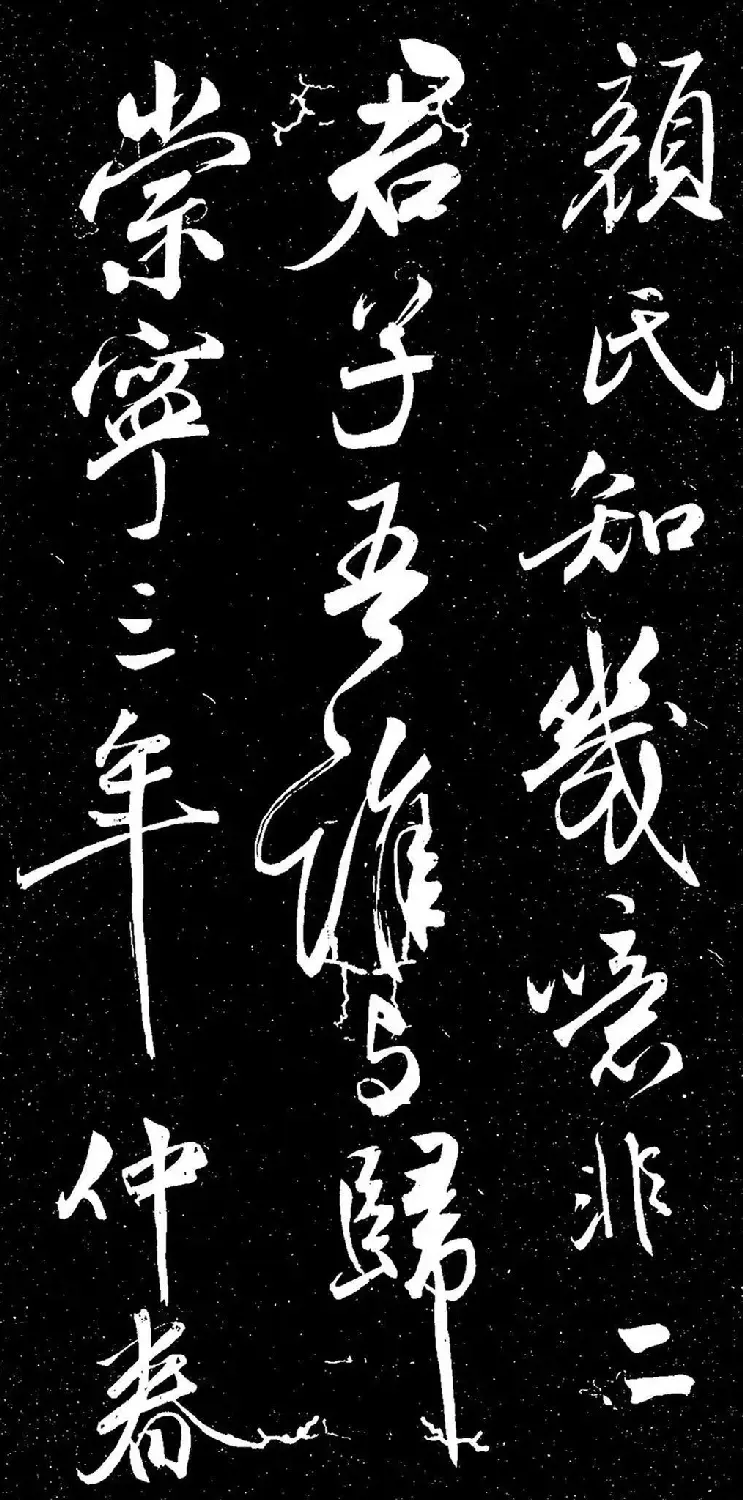 顔氏知幾噫非二
君子吾誰与歸
崇寧三年仲春